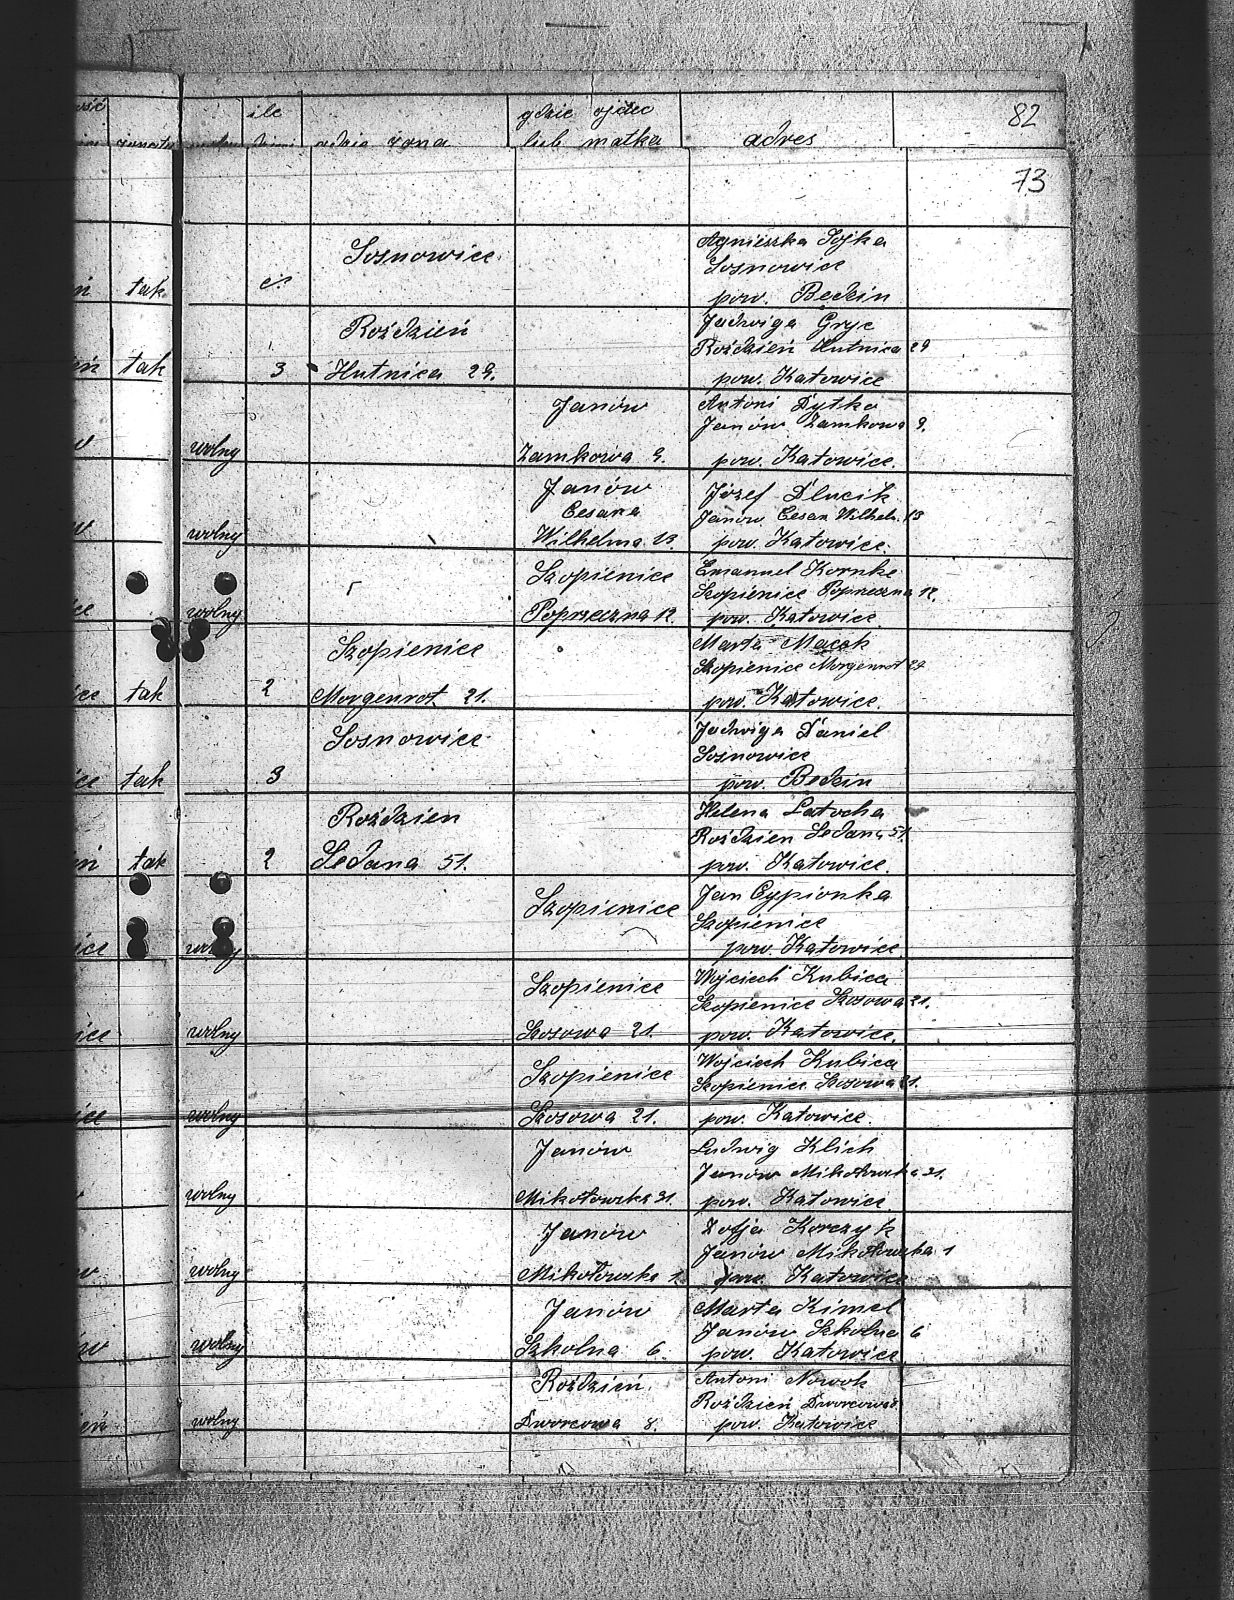 82
ile gdzie ojciec
gdzie żona lub matka adres
73
Sosnowice Agnieszka Sojka
Sosnowice
tak pow. Będzin
Roździeń Jadwiga Gryc
Roździeń Hutnica 29
tak 3 Hutnica 29. pow. Katowice
Janów Antoni Dytko
Janów Zamkowa 9.
wolny Zamkowa 9. pow. Katowice.
Janów Józef Dlucik
Cesara Janów Cesar. Wilhelm. 13
wolny Wilhelma 13. pow. Katowice.
Szopienice Emanuel Kornke
Szopienice Poprzeczna 12.
wolny Poprzeczna 12. pow. Katowice.
Szopienice Marta Macok
Szopienice Morgenrot
tak 2 Morgenrot 21. pow. Katowice.
Sosnowice Jadwiga Daniel
Sosnowice
tak 3 pow. Bedzin
Roździen Helena Latocha
Roździen Sedana 51.
tak 2 Sedana 51. pow. Katowice.
Szopienice Jan Cypionka
Szopienice
wolny pow. Katowice.
Szopienice Wojciech Kubica
Szopienice Szosowa 21.
wolny Szosowa 21. pow. Katowice.
Szopienice Wojciech Kubica
Szopienice Szosowa 21.
wolny Szosowa 21. pow. Katowice.
Janów Ludwig Klich
Janów Mikołowska 31.
wolny Mikołowska 31. pow. Katowice.
Janów Zofja Korczyk
Janów Mikołowska 1
wolny Mikołowska 1. pow. Katowice
Janów Marta Kimel
Janów Szkolna 6
wolny Szkolna 6. pow. Katowice
Roździeń Antoni Nowok
Roździeń Dworcowa 8
wolny Dworcowa 8. pow. Katowice